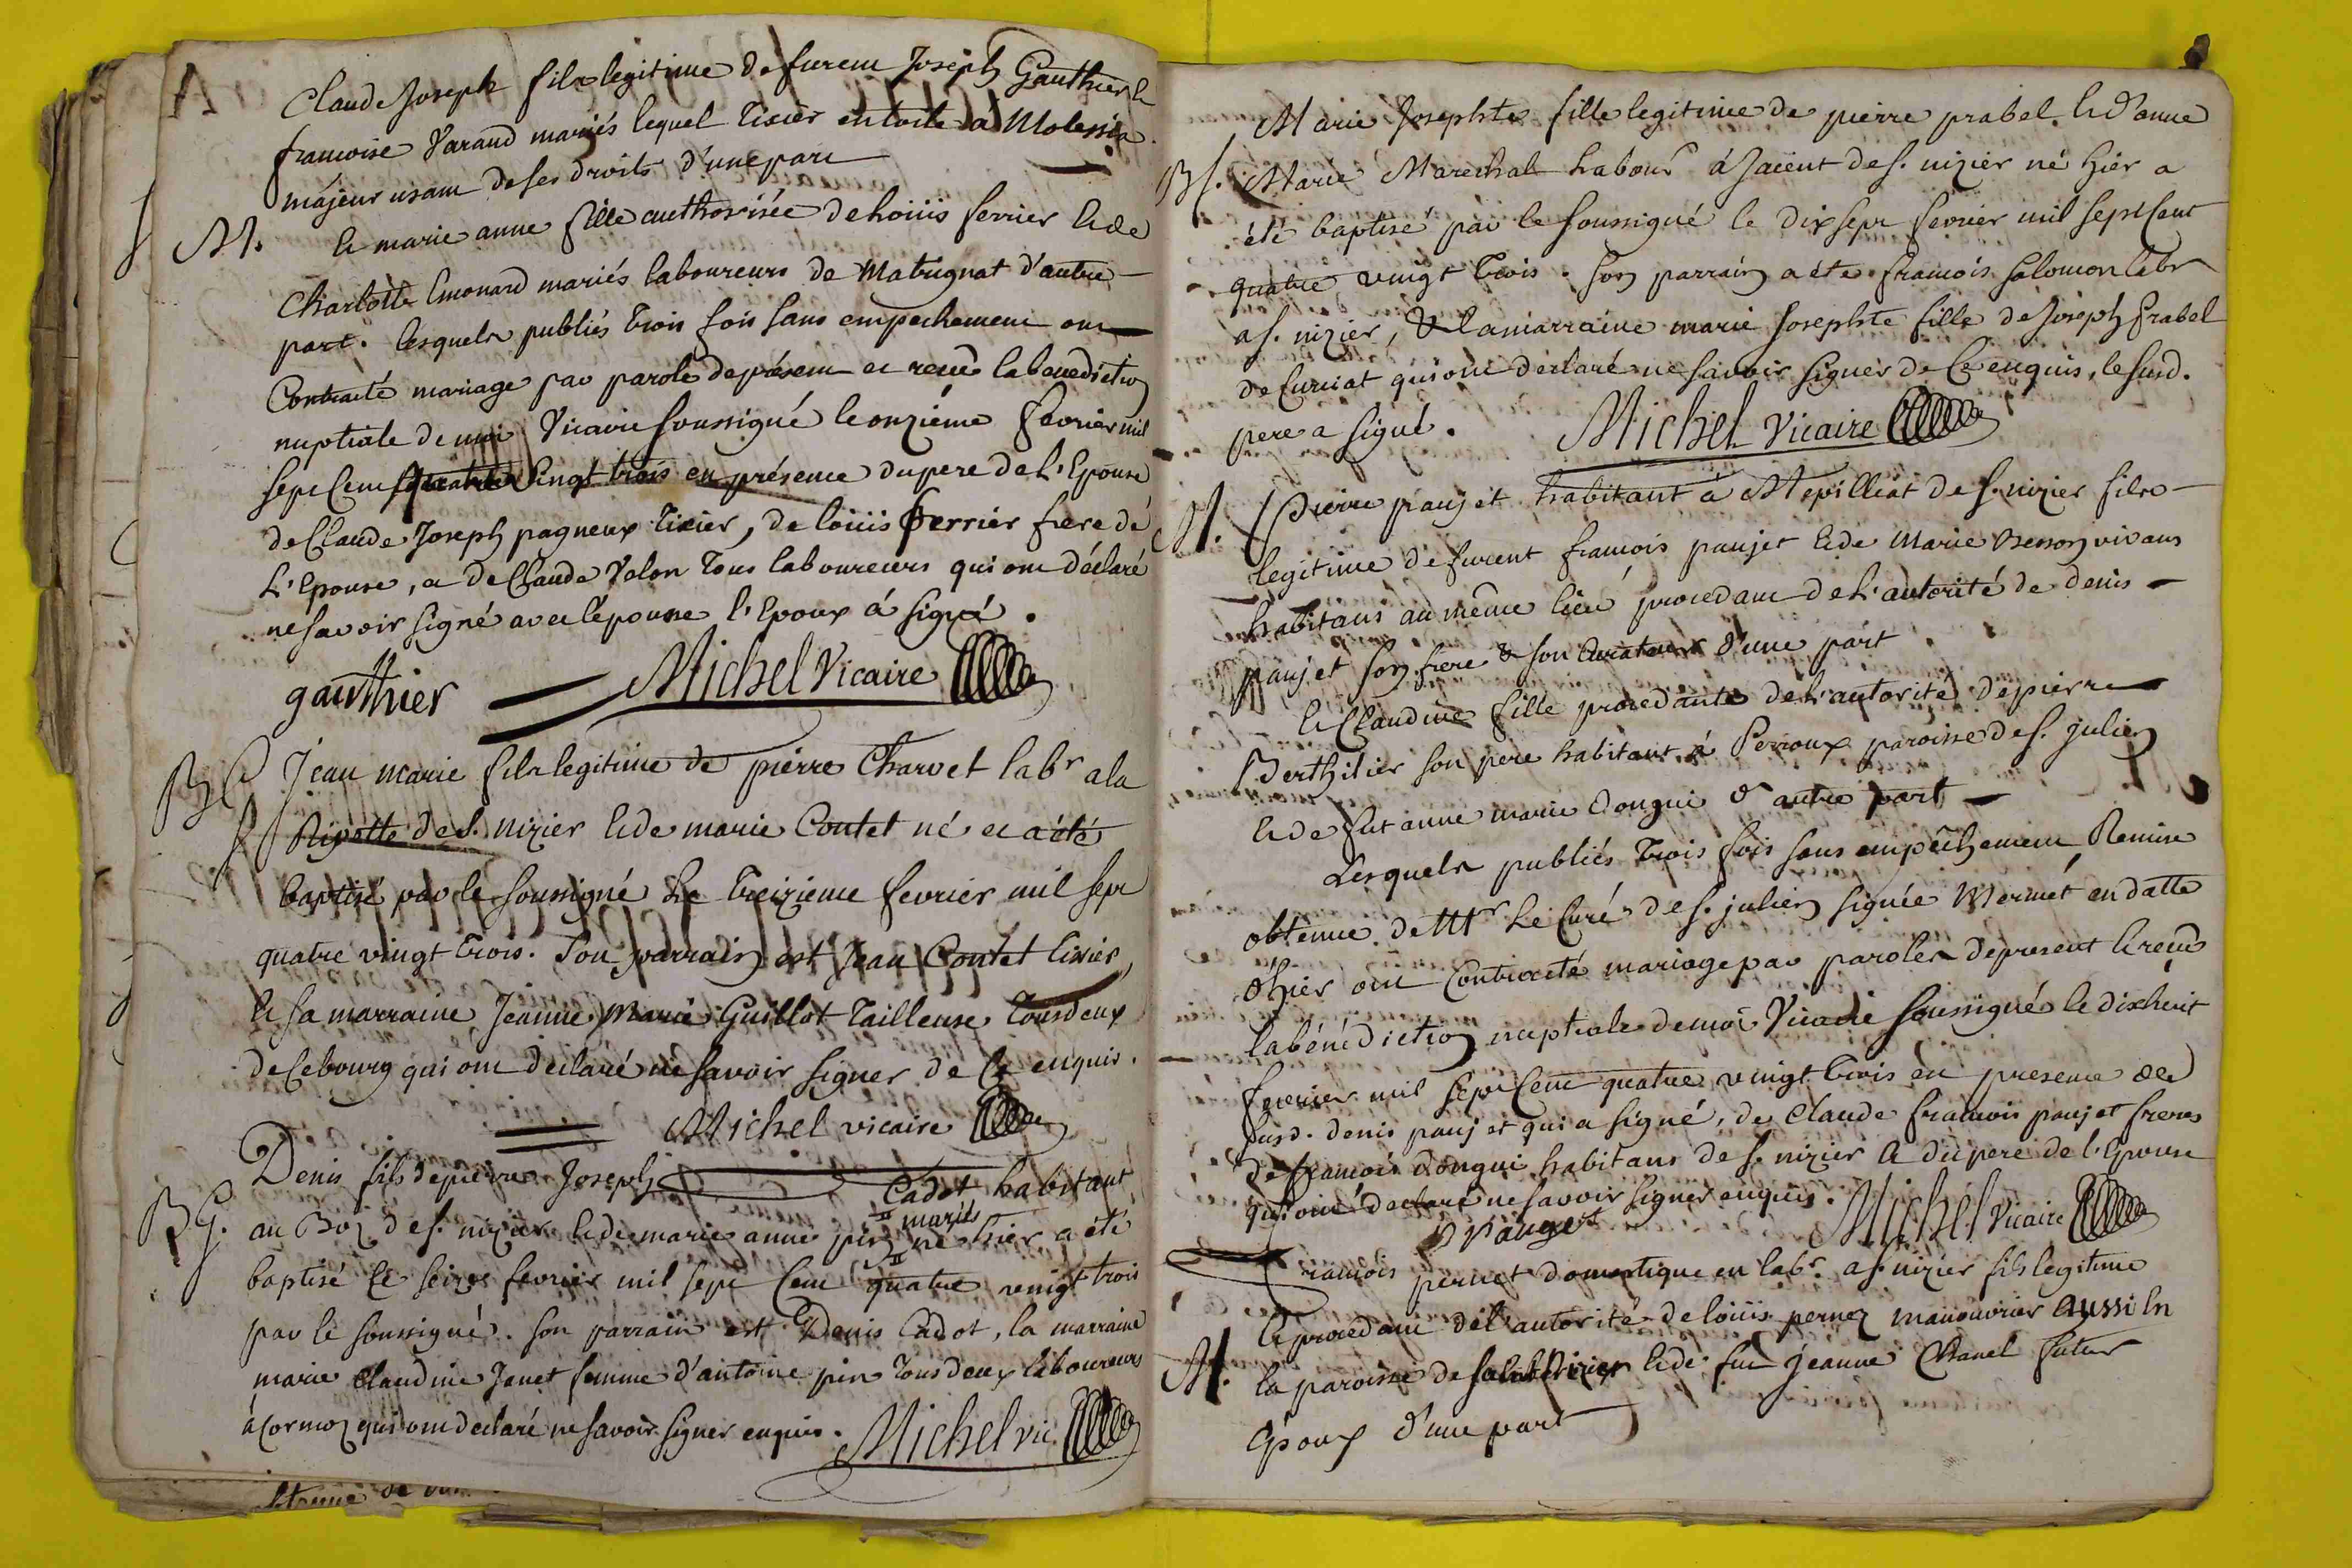 Claude Joseph fils legitime de furent Joseph Gauthier &
francoise Varand mariés lequel tixier en toile à Molessia
majeur usant de ses droits d'une part
M. & marie anne fille authorisée de loüis ferrier & de
Charlotte Emonard mariés laboureurs de Matugnat d'autre
part. lesquels publiés trois fois sans empechement ont
Contracté mariage par parole de présent et receu la benediction
nuptiale de moi Vicaire soussigné le onzieme fevrier mil
sept Cent quatre Vingt trois en présence du pere de l'Epouse
de Claude Joseph pagneux tixier, de loüis ferrier frere de
l'Epouse, et de Claude Velon tous laboureurs qui ont déclaré
ne savoir signé avec l'épouse l'Epoux à signé.
gauthier Michel Vicaire
BG Jean marie fils legitime de pierre Charvet labr a la
Rigotte de s. nizier & de marie Contet né et a été
baptisé par le soussigné le treizieme fevrier mil sept
quatre vingt trois. Son parrain est Jean Contet tixier,
& sa marraine Jeanne Marie Guillot tailleuse tous deux
de Ce bourg qui ont declaré ne savoir signer de Ce enquis.
Michel vicaire
Denis fils de pierre Joseph
Cadot habitant
mariés
BG. au Boz de s. nizier & de marie anne pin né hier a été
baptisé le seize fevrier mil sept Cent quatre vingt trois
par le soussigné. son parrain est Denis Cadot, la marraine
marie Claudine Janet femme d'antoine pin tous deux laboureurs
à Cormoz qui ont declaré ne savoir signer enquis. Michel vic.
Marie Josephte fille legitime de pierre prabel & d'anne
Bf. Marie Marechal Labour à Jaient de s. nizier né hier a
été baptisé par le soussigné le dix sept fevrier mil sept Cent
quatre vingt trois. son parrain a été francois Salomon labr
a s. nizier, & la marraine marie Josephte fille de Joseph prabel
de Curciat qui ont déclaré ne savoir signer de Ce enquis, le susd.
pere a signé. Michel Vicaire
M. Pierre paujet habitant à Mepilliat de s. nizier fils
legitime de furent francois paujet & de Marie Besson vivans
habitans au même lieu procedant de l'autorité de denis
paujet son frere & son Curateur d'une part
& Claudine fille procedante de l'autorité de pierre
Berthilier son pere habitant à Perroux paroisse de s. julien
& de fut anne marie Dongui d'autre part
Lesquels publiés trois fois sans empêchement Remise
obtenue de Mr Le Curé de s. julien signée Mermet en datte
d'hier ont Contracté mariage par paroles de present & receu
la bénédiction nuptiale de moi Vicaire soussigné le dixhuit
fevrier mil sept Cent quatre vingt trois en presence de
susd. denis paujet qui a signé, de Claude francois paujet freres
de francois Dongui habitans de s. nizier & du pere de l'Epouse
qui ont declaré ne savoir signer enquis. Michel Vicaire
D Pauget
francois pernet domestique en labr. a s. nizier fils legitime
& procedant de l'autorité de loüis pernez manouvrier aussi En
M. la paroisse de saint Nizier & de fut jeanne Chanel futur
Epoux d'une part